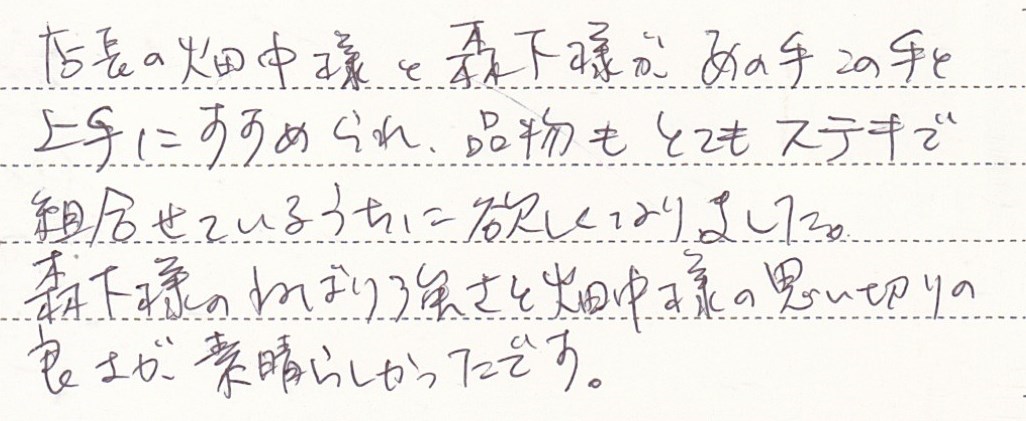 店長の畑中様と森下様が、あの手この手と
上手にすすめられ、品物もとてもステキで
組合せているうちに欲しくなりました。
森下様のねばり強さと畑中様の思い切りの
良さが、素晴らしかったです。